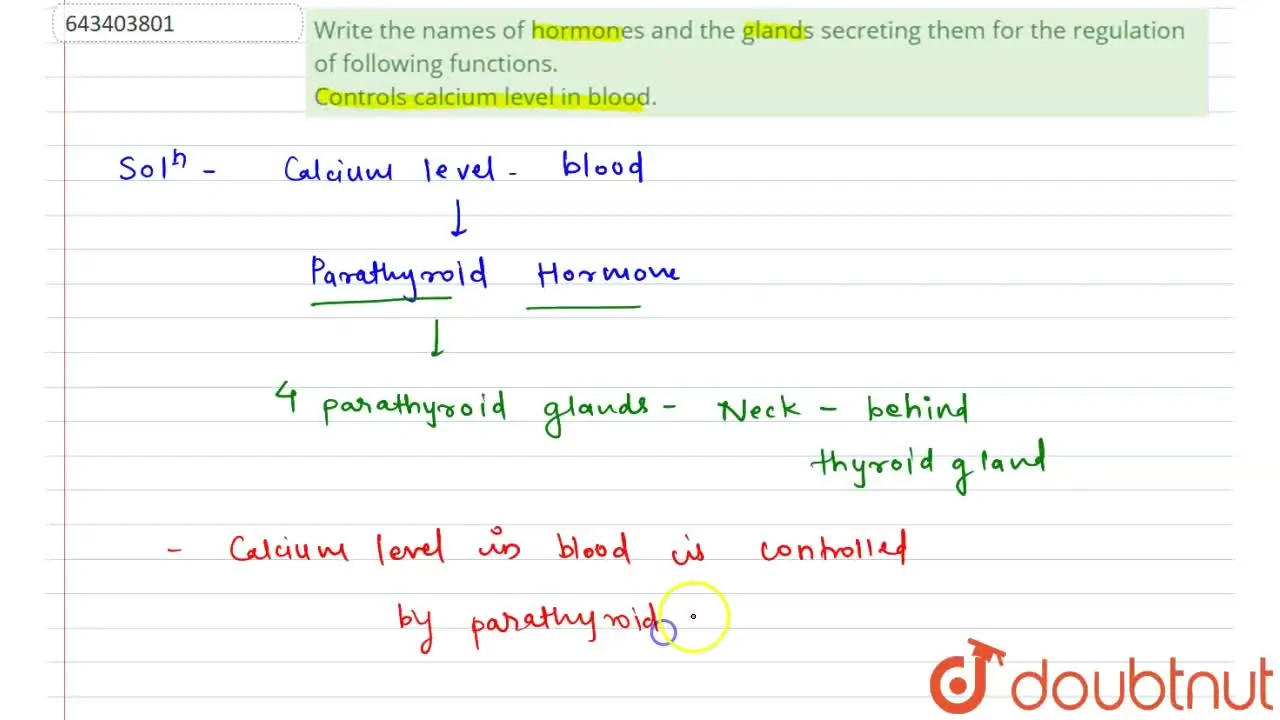 643403801
Write the names of hormones and the glands secreting them for the regulation
of following functions.
Controls calcium level in blood.
Solⁿ - Calcium level - blood
↓
Parathyroid Hormone
↓
4 parathyroid glands - Neck - behind
thyroid gland
- Calcium level in blood is controlled
by parathyroid
doubtnut